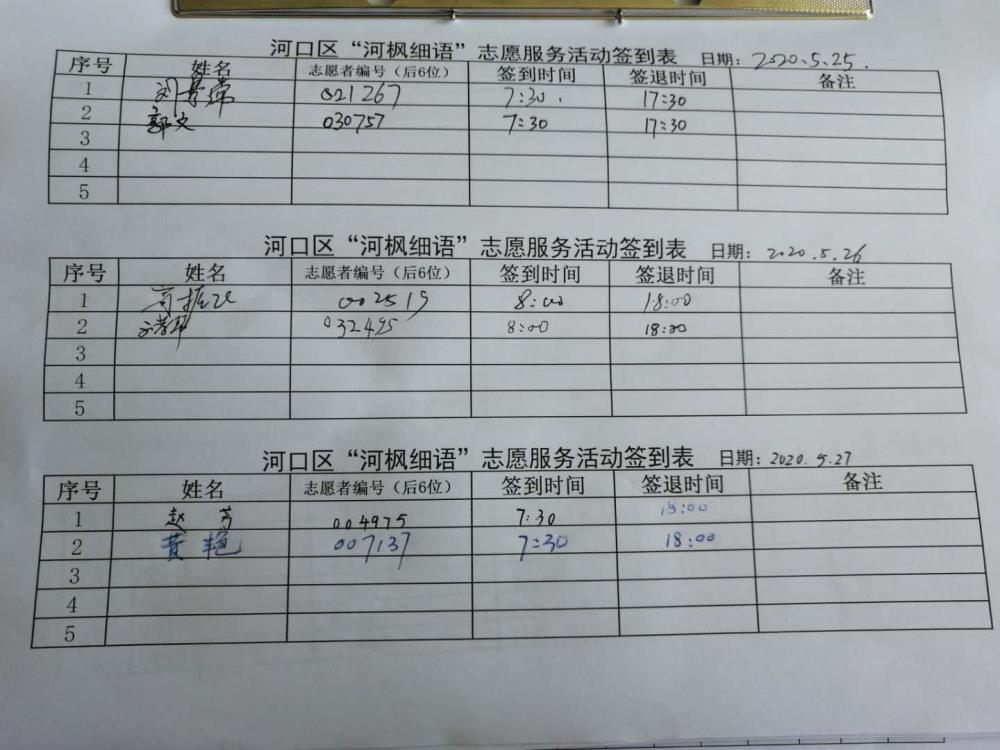 河口区“河枫细语”志愿服务活动签到表 日期：2020.5.25.
序号 姓名 志愿者编号（后6位） 签到时间 签退时间 备注
1 021267 7:30. 17:30
2 郭文 030757 7:30 17:30
3
4
5
河口区“河枫细语”志愿服务活动签到表 日期：2020.5.26
序号 姓名 志愿者编号（后6位） 签到时间 签退时间 备注
1 002519 8:00 18:00
2 032495 8:00 18:00
3
4
5
河口区“河枫细语”志愿服务活动签到表 日期：2020.5.27
序号 姓名 志愿者编号（后6位） 签到时间 签退时间 备注
1 赵芳 004975 7:30 18:00
2 黄艳 007137 7:30 18:00
3
4
5